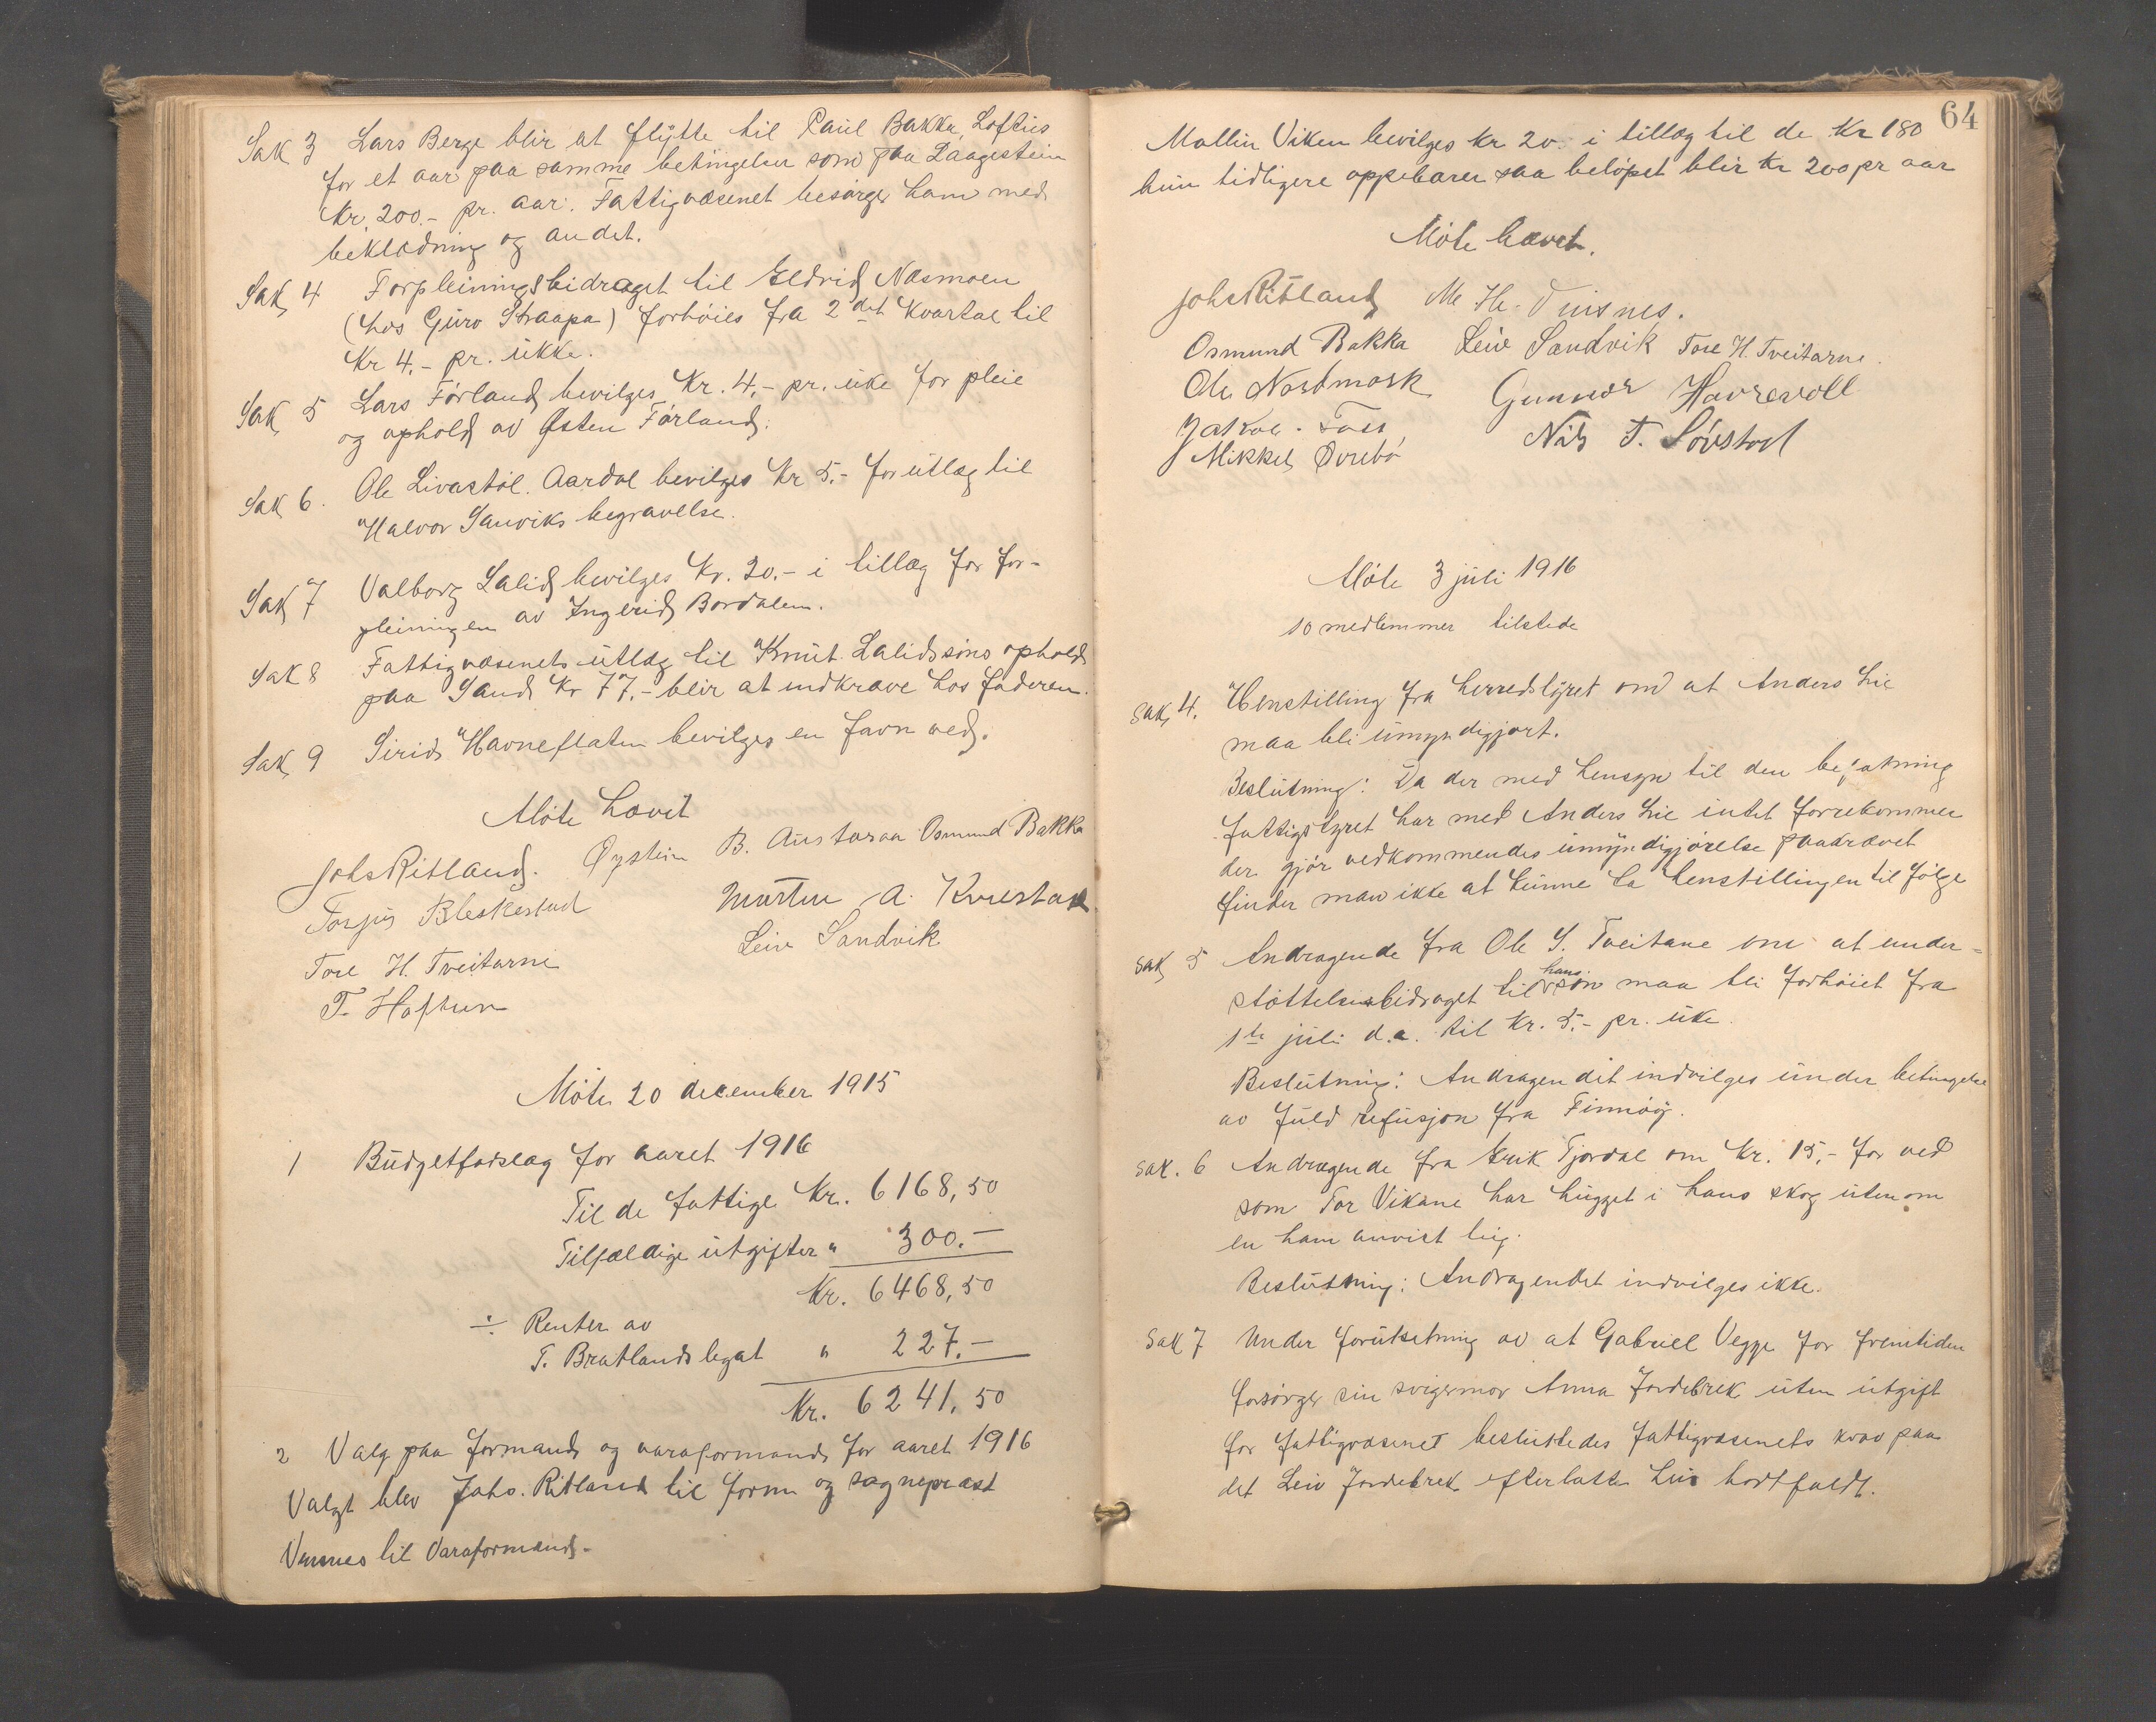 Sak 3 Lars Berge blir at flytte til Paul Bakka, Loftus
for et aar paa samme betingelser som paa Laagestein
Kr. 200.- pr. aar. Fattigvæsenet besörger ham med
beklædning og andet.
Sak 4 Forpleiningsbidraget til Eldrid Næsmoen
(hos Guro Straapa) forhöies fra 2det kvartal til
Kr 4.- pr. uke.
Sak 5 Lars Förland bevilges Kr. 4,- pr. uke for pleie
og ophold av Östen Förland.
Sak 6. Ole Livastöl. Aardal bevilges Kr 5.- for utlæg til
Halvor Sanviks begravelse.
Sak 7 Valborg Lalid bevilges Kr. 20.- i tillæg for for-
pleiningen av Ingerid Bordalen.
Sak 8 Fattigvæsenets utlæg til Knut Lalids söns ophold
paa Sand Kr 77.- blir at indkræve hos faderen.
Sak 9 Sirid Havneflaten bevilges en favn ved.
Möte hævet
Johs Ritland. Öystein B. Austaraa Osmund Bakka
Torjus Bleskestad Morten A. Kvæstad
Leiv Sandvik
Tore H. Tveitarne
T. Hoftun
Möte 20 december 1915
1 Budgetforslag for aaret 1916
Til de fattige Kr. 6168,50
Tilfældige utgifter " 300.-
Kr. 6468,50
÷ Renter av
T. Bratlands legat " 227.-
Kr. 6241,50
2 Valg paa formand og varaformand for aaret 1916
Valgt blev Johs. Ritland til form og sogneprest
Vinsnes til Varaformand.
64
Mallin Viken bevilges kr 20. i tillæg til de Kr 180
hun tidligere oppebærer saa belöpet blir Kr 200 pr aar
Möte hævet.
Johs Ritland M. H. Vinsnes.
Osmund Bakka Leiv Sandvik Tore H. Tveitarne.
Ole Nordmork Gunnar Havrevoll
Jakob Foss, Nils T. Lövstad
Mikkel Övrebö
Möte 3 juli 1916
10 medlemmer tilstede
Sak 4. Henstilling fra herredstyret om at Anders Lie
maa bli umyndigjort.
Beslutning: Da der med hensyn til den befatning
fattigstyret har med Anders Lie intet forrekommer
der gjör vedkommendes umyndigjörelse paakrævet
finder man ikke at kunne ta henstillingen til fölge
Sak 5 Andragende fra Ole S. Tveitane om at under-
stöttelsesbidraget til hans sön maa bli forhöiet fra
1ste juli d.a. til Kr. 5.- pr. uke.
Beslutning: Andragendet indvilges under betingelse
av fuld refusjon fra Finnöy.
Sak. 6 Andragende fra Erik Fjordal om Kr. 15,- for ved
som Tor Vikane har hugget i hans skog utenom
en ham anvist teig.
Beslutning: Andragendet indvilges ikke.
Sak 7 Under forutsetning av at Gabriel Vegge for fremtiden
forsörger sin svigermor Anna Jordebrek uten utgift
for fattigvæsenet besluttedes fattigvæsenets krav paa
det Leiv Jordebrek efterlatte hus bortfaldt.